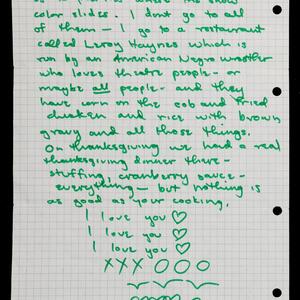 color slides. I don't go to all
of them — I go to a restaurant
called Leroy Haynes which is
run by an American Negro wrestler
who loves theatre people — or
maybe all people — and they
have corn on the cob and fried
chicken and rice with brown
gravy and all those things.
On thanksgiving we had a real
thanksgiving dinner there —
stuffing, cranberry sauce —
everything — but nothing is
as good as your cooking.
I love you ♡
I love you ♡
I love you ♡
XXX OOO